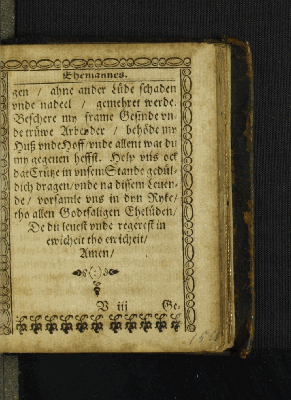 Ehemannes.
gen / ahne ander Lüde schaden
vnde nadeel / gemehret werde.
Beschere my frame Gesinde vn-
de trüwe Arbeyder / behöde my
Huß vnde Hoff / vnde allent wat du
my gegeuen heffst. Help vns ock
dat Crütze in vnsem Stande gedül-
dich dragen / vnde na dissem Leuen-
de / vorsamle vns in dyn Ryke /
tho allen Godtsaligen Ehelüden /
De du leuest vnde regerest in
ewicheit tho ewicheit /
Amen /
V iij Ge-